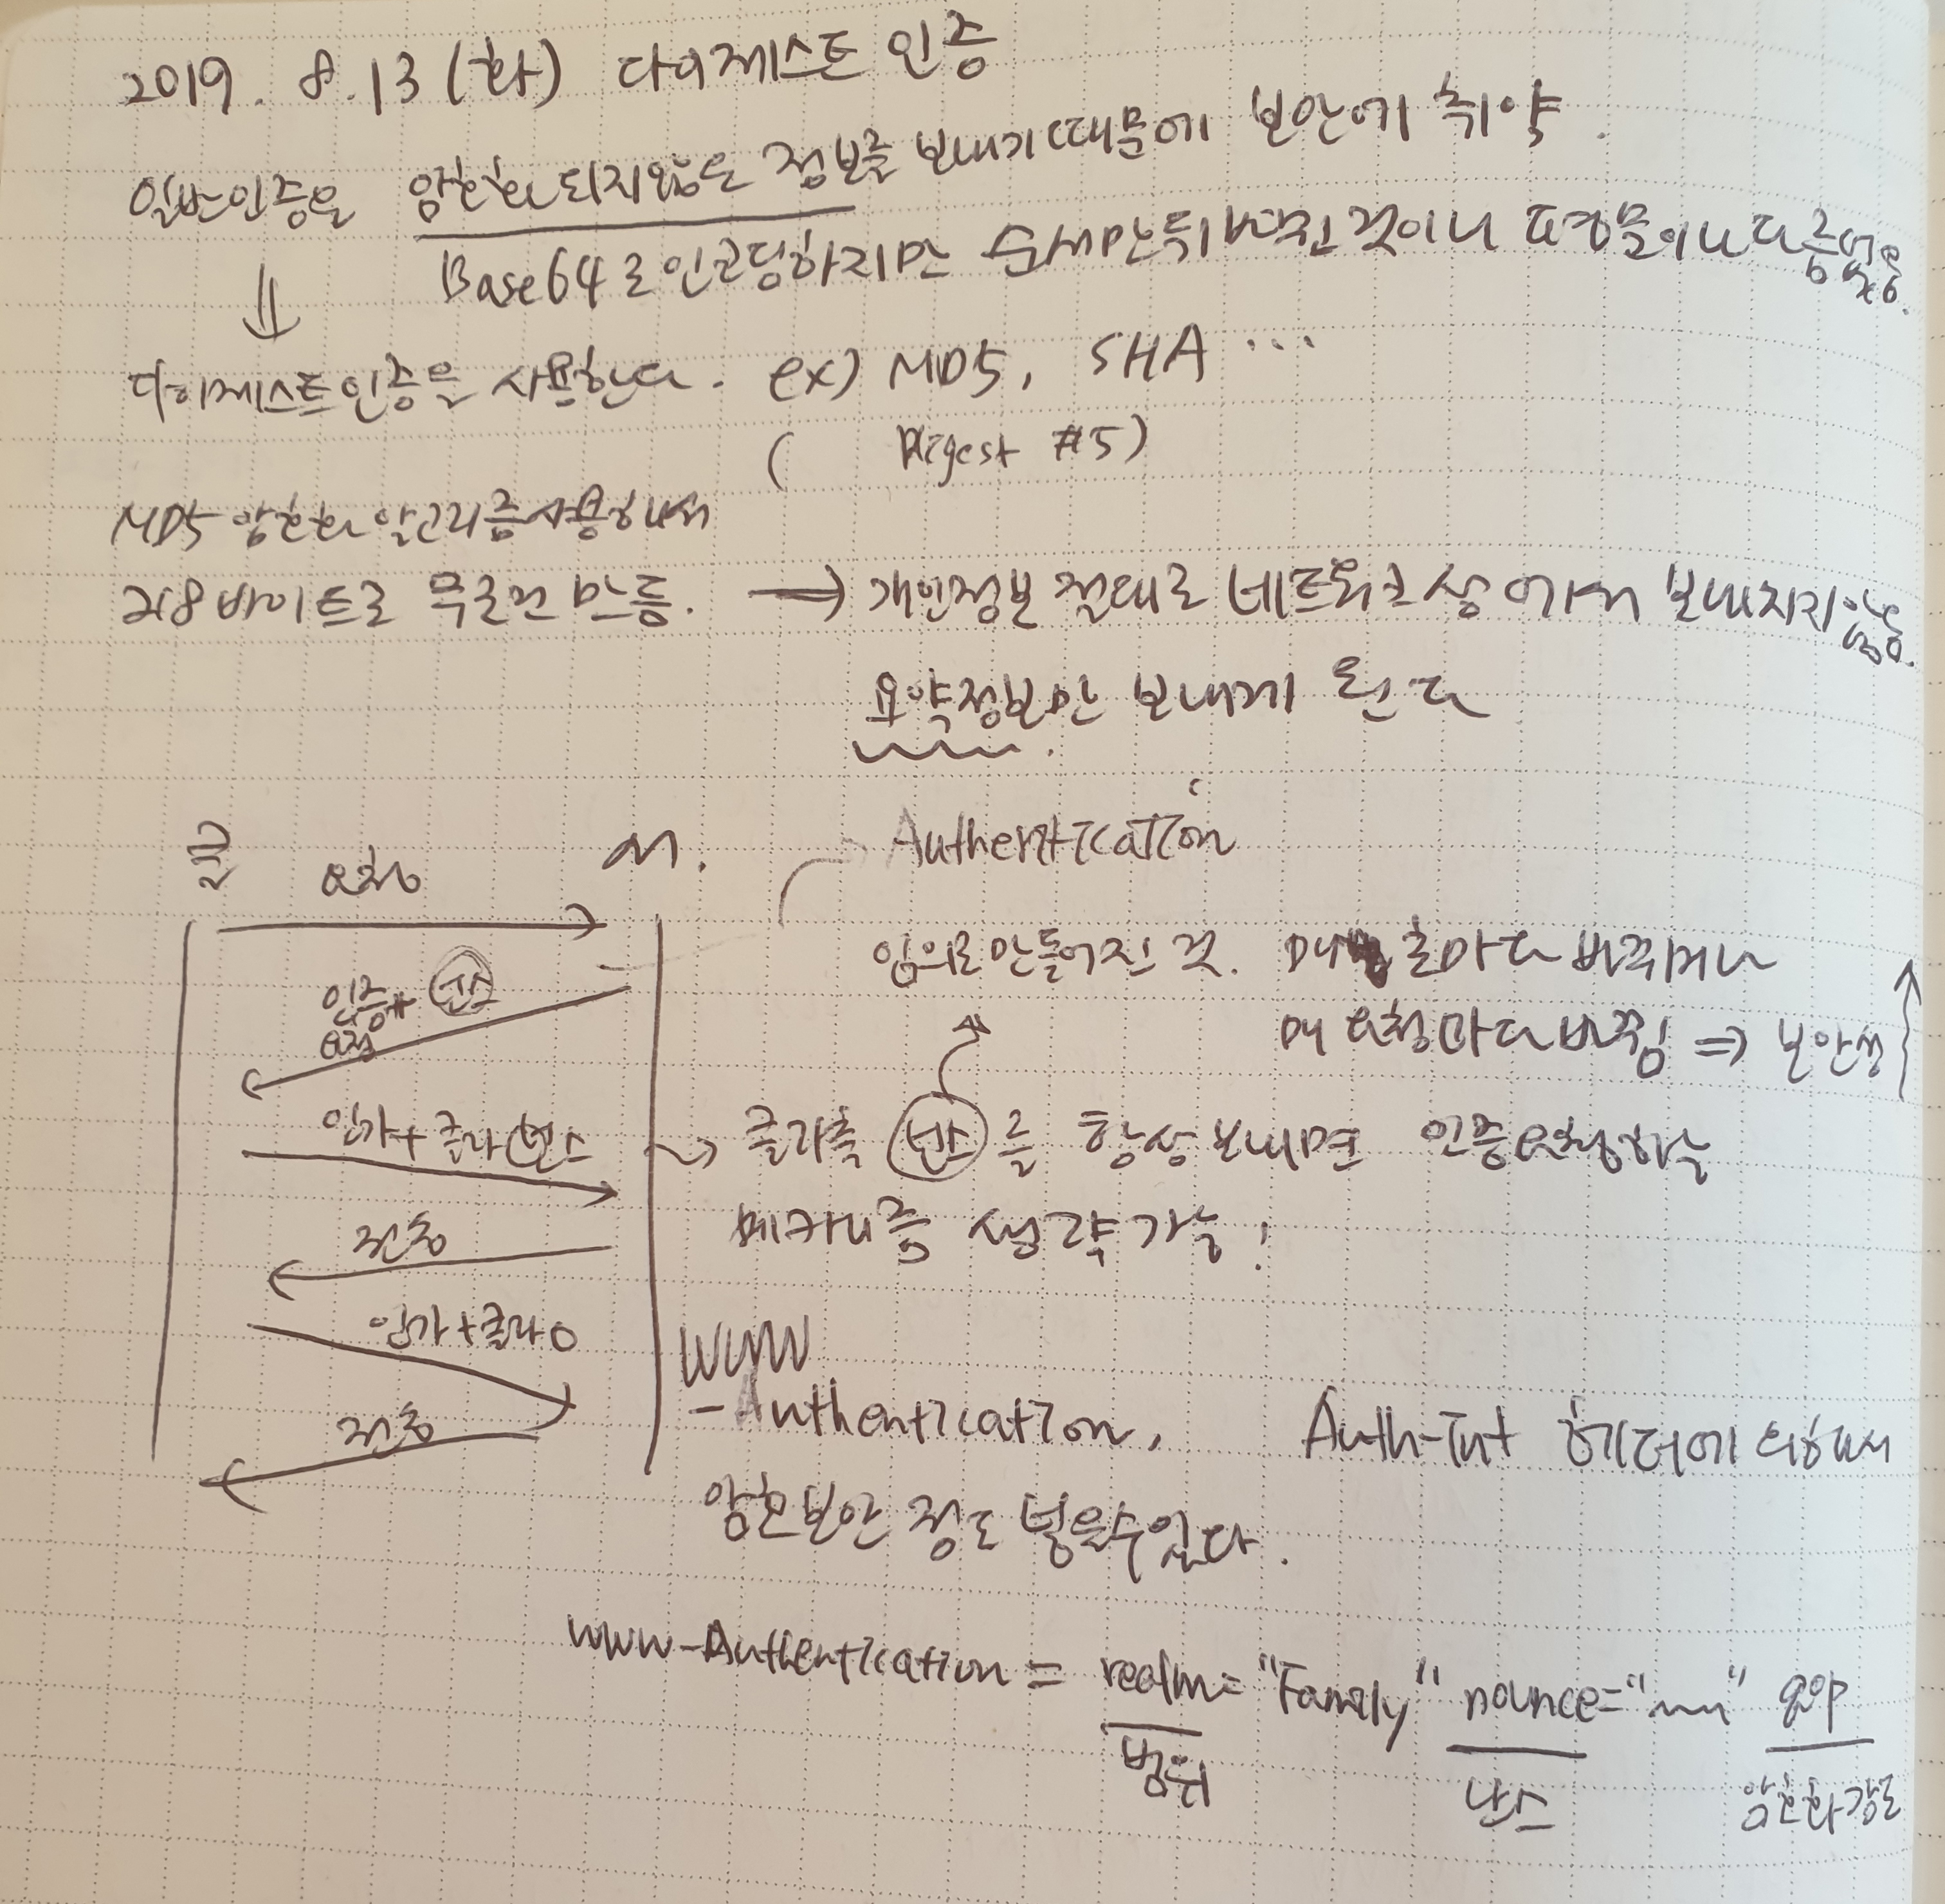 2019. 8.13 (화) 다이제스트 인증
일반인증은 암호화되지않은 정보를 보내기 때문에 보안에 취약.
Base64로 인코딩하지만 순서만 뒤바뀐 것이니
다이제스트인증을 사용한다. ex) MD5, SHA ...
( Digest #5)
MD5 암호화 알고리즘사용해서
바이트로 무조건 만듬. → 개인정보 절대로 네트워크상에서 보내지지않음.
요약정보만 보내게 된다
Authentication
클 서.
요청
인증요청 + 난스
인가 + 클라 난스
전송
인가 + 클라
전송
임의로 만들어진 것. 매 초마다 바뀌거나
매 요청마다 바뀜 ⇒ 보안성 ↑
↝ 클라측 난스를 항상 보내면 인증요청하는
메카니즘 생략가능.
WWW
-Authentication, Auth-Int 헤더에 의해서
암호보안 정도 넣을수있다.
WWW-Authentication = realm="Family" nounce="~~" qop
범위 난스 암호화강도